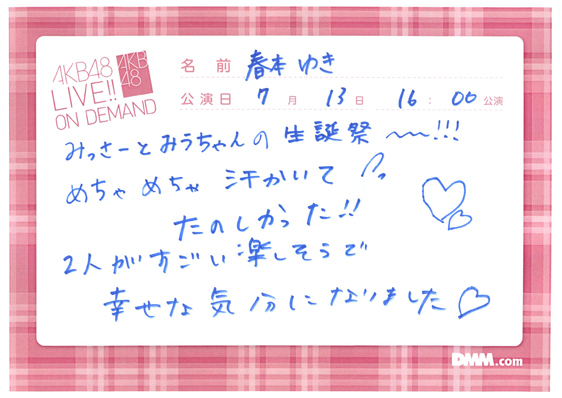 AKB48
LIVE!!
ON DEMAND
AKB
48
名 前 春本 ゆき
公演日 7 月 13 日 16 : 00 公演
みっさーと みうちゃんの 生誕祭 〜〜!!!
めちゃ めちゃ 汗かいて
たのしかった!!
2人が すごい 楽しそうで
幸せな 気分に なりました♡
DMM.com